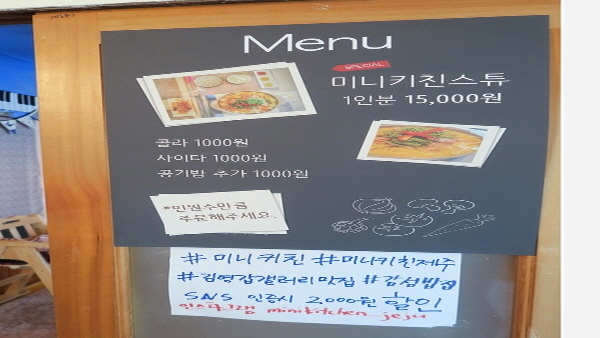 Menu
SPECIAL
미니키친스튜
1인분 15,000원
콜라 1000원
사이다 1000원
공기밥 추가 1000원
*인원수만큼
주문해주세요.
# 미니키친 #미니키친제주
#김영갑갤러리맛집 #감성밥집
SNS 인증시 2000원 할인
인스타그램 minikitchen_jeju